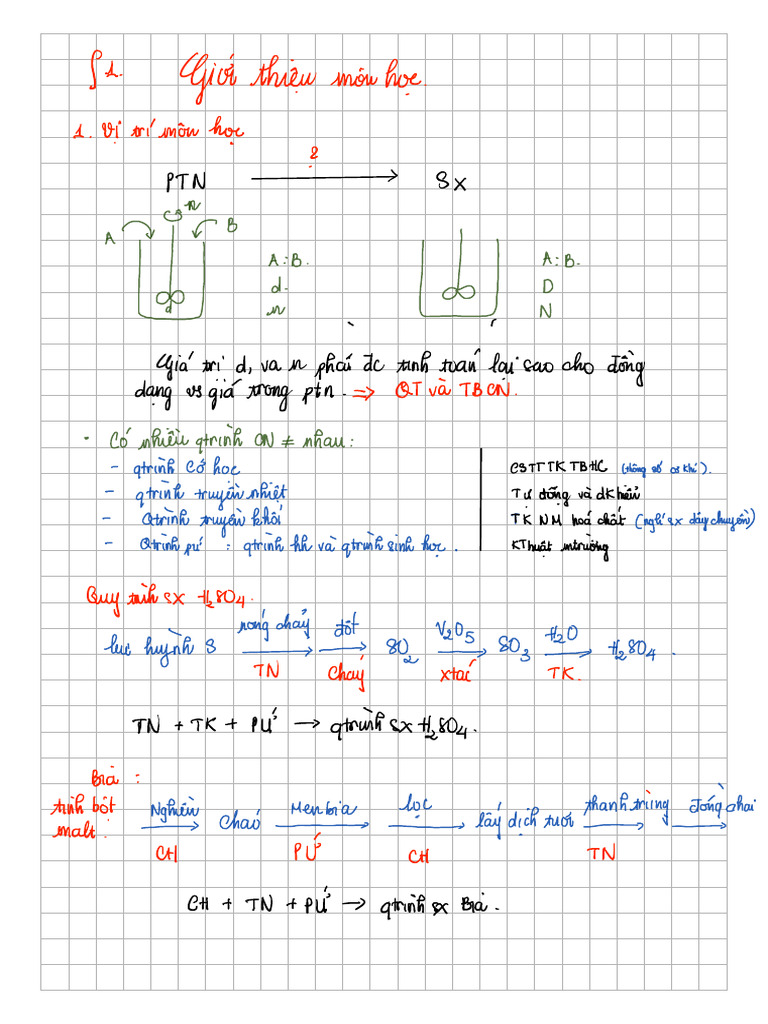 §1. Giới thiệu môn học.
1. Vị trí môn học
?
PTN → SX
n
A B
A:B. A:B.
d. D
d
n N
Giá trị d, và n phải đc tính toán lại sao cho đồng
dạng vs giá trong ptn. ⇒ QT và TBCN.
· Có nhiều qtrình CN ≠ nhau:
- qtrình Cơ học
- qtrình truyền nhiệt
- Qtrình truyền khối
- Qtrình pứ : qtrình hh và qtrình sinh học.
CSTTTKTBHC (thông số cơ khí).
Tự động và đkhiển
TK NM hoá chất (nghĩ sx dây chuyền)
KThuật mtrường
Quy trình sx H₂SO₄.
nóng chảy đốt V₂O₅ H₂O
lưu huỳnh S → → SO₂ → SO₃ → H₂SO₄.
TN Cháy xtác TK.
TN + TK + PỨ → qtrình sx H₂SO₄.
Bia :
tinh bột Nghiền Men bia lọc thanh trùng đóng chai
malt. → cháo → → lấy dịch tươi → →
CH PỨ CH TN
CH + TN + PỨ → qtrình sx Bia.